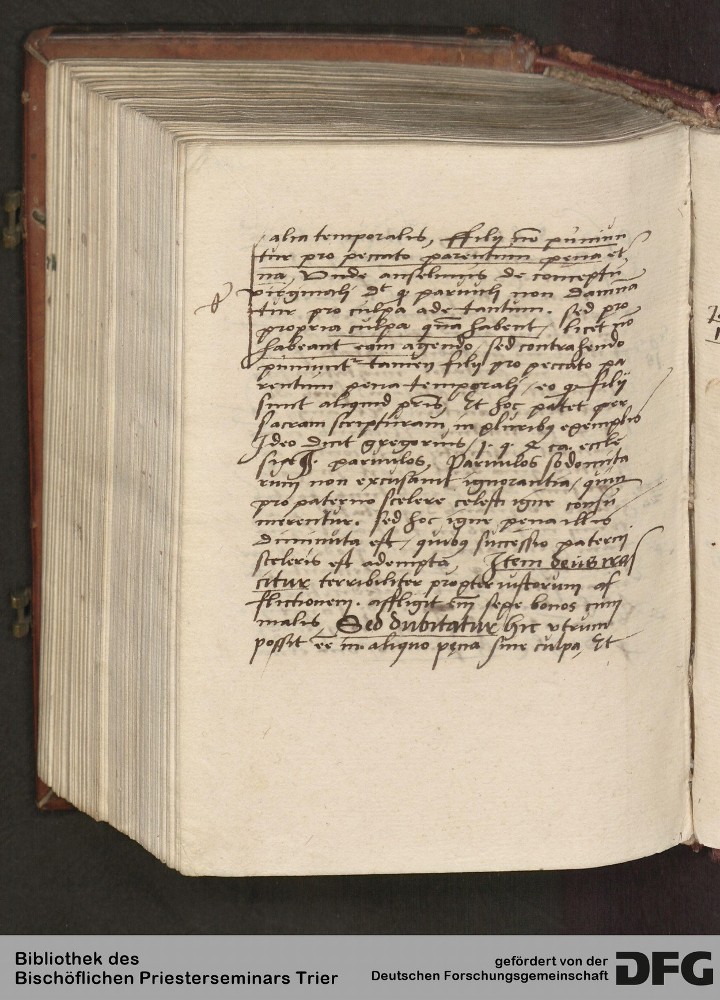 alia temporalis, ffilij nō puniun
tur pro peccato parentum pena et
na, Unde anselmus de conceptu
virginali dt q paruuli non damna
tur pro culpa ade tantum. sed pro
propria culpa quā habent, licet nō
habeant eam agendo, sed contrahendo
puniunt tamen filij pro peccato pa
rentum pena temporali, eo q filij
sunt aliquid pris, Et hoc patet per
sacram scripturam, in pluribꝫ exemplis
Ideo dicit gregorius, 1. q. 4 ca. eccle
paruulos, Paruulos sodomita
rum non excusauit ignorantia, quin
pro paterno scelere celesti igne consu
merentur. sed hoc igne pena illis
diminuta est, quibꝫ successio paterni
sceleris est adempta Item deus iras
citur terribiliter propter iustorum af
flictionem. affligit em̄ sepe bonos cum
malis Sed dubitatur hic vtrum
possit ēē in aliquo pena sine culpa, Et
Bibliothek des
Bischöflichen Priesterseminars Trier
gefördert von der
Deutschen Forschungsgemeinschaft
DFG